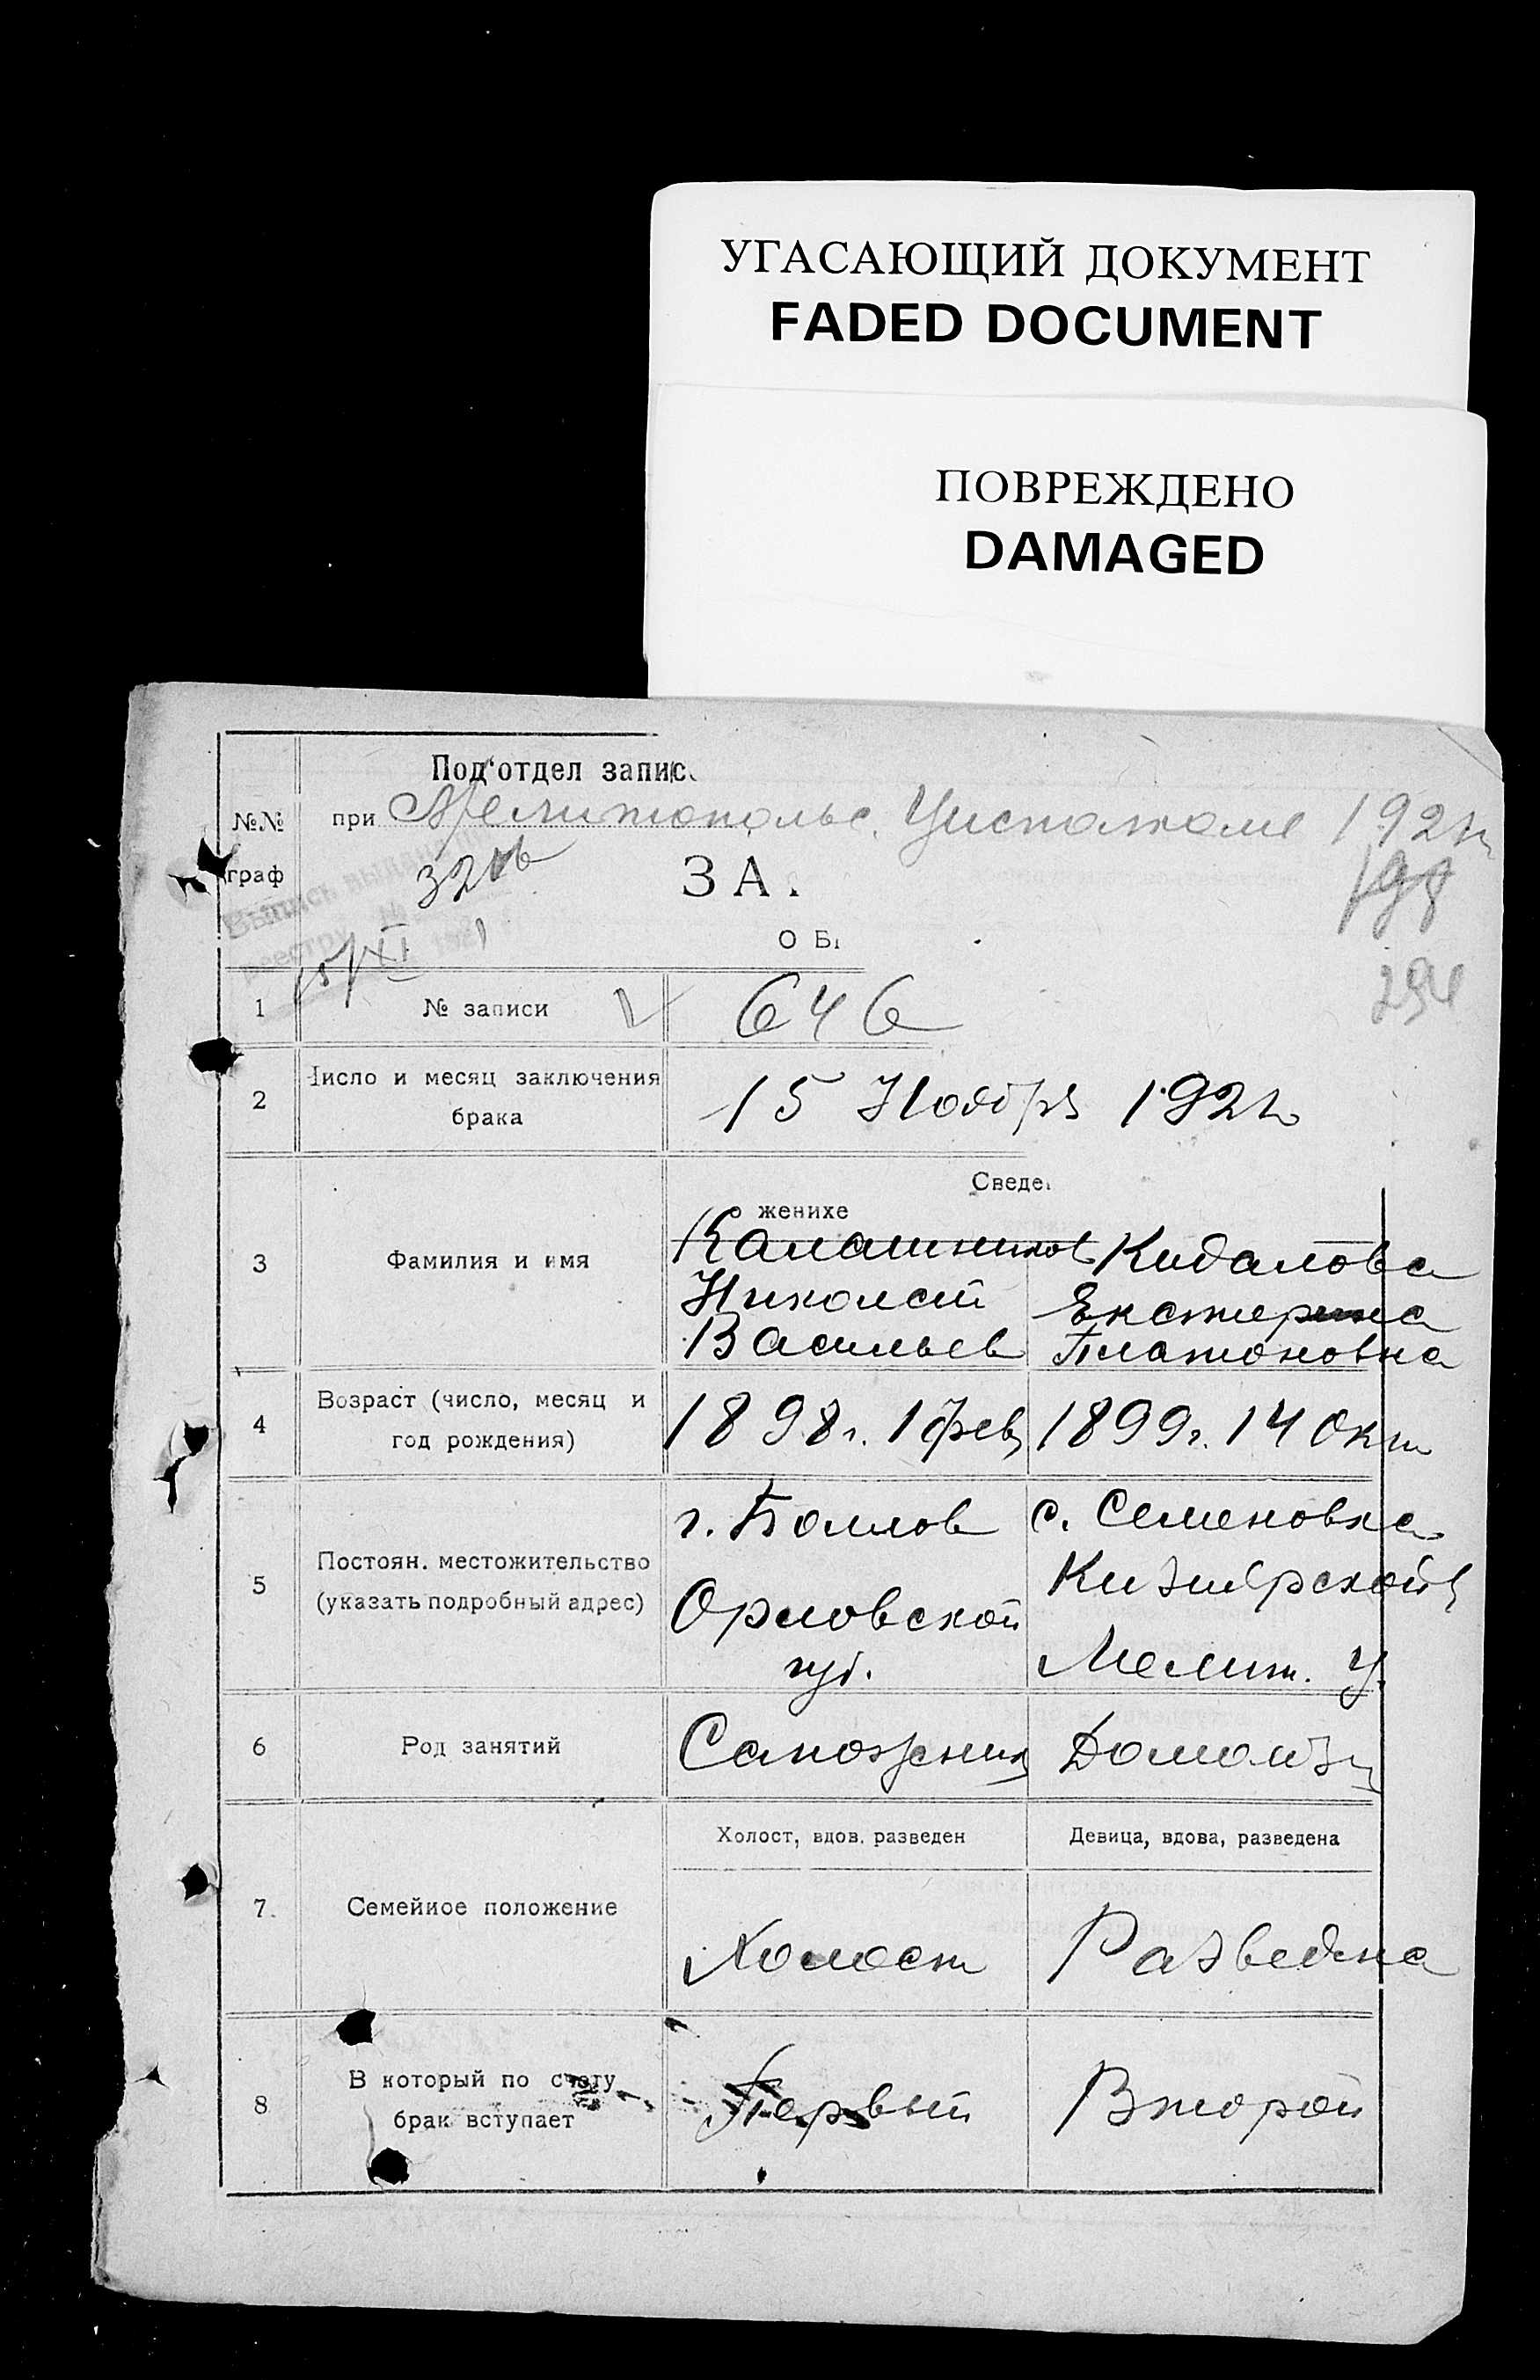 УГАСАЮЩИЙ ДОКУМЕНТ
FADED DOCUMENT
ПОВРЕЖДЕНО
DAMAGED
Под'отдел запис
№№ граф
при Мелитопольс. Уисполкоме 192
ЗА.
О Б
15/XI
1 № записи 646
2 Число и месяц заключения брака
15 Ноября 192
Сведе
о женихе
3 Фамилия и имя
Калашников Кидалова
Николай Екатерина
Васильев Платоновна
4 Возраст (число, месяц и год рождения)
1898г. 1 фев 1899г. 14 Окт
5 Постоян. местожительство (указать подробный адрес)
г. Болхов с. Семеновка
Орловской
губ. Мелит. У.
6 Род занятий
Сапожник Домохоз
7. Семейное положение
Холост, вдов. разведен Девица, вдова, разведена
Холост Разведена
8 В который по счету брак вступает
Первый Второй